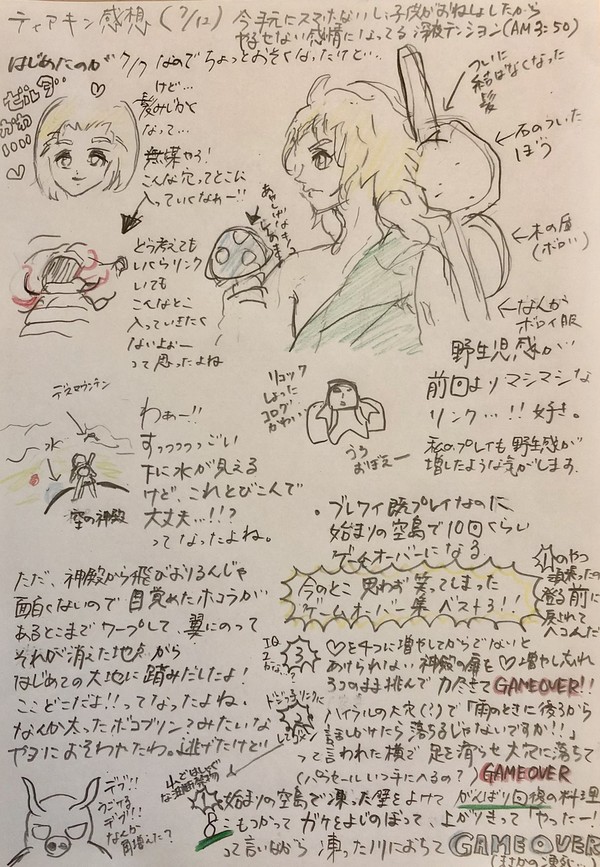 ティアキン感想(7/12)
今手元にスマホないし子供がおねしょしたから
やるせない感情になってる深夜テンション(AM3:50)
はじめたのが7/7なのでちょっとおそくなったけど…
ゼルダ
かわ
けど…
髪みじかく
なって…
無謀やろ!
こんな穴ってとこに
入っていくなぁー!!
ついに
結ばなくなった
髪
石のついた
ぼう
木の盾
(ボロい)
なんか
ボロイ服
野生児感が
前回よりマシマシな
リンク…!!好き。
私のプレイも野生感が
増したような気がします。
どう考えても
いくらリンク
いても
こんなとこ
入っていきたく
ないよぉー
って思ったよね
リュック
しょった
コログ
かわいい
うろ
おぼえー
デスマウンテン
水
空の神殿
わぁー!!
すっっっっっごい
下に水が見える
けど、これとびこんで
大丈夫…!!?
ってなったよね。
・ブレワイ既プレイなのに
始まりの空島で10回くらい
ゲームオーバーになる
今のとこ思わず笑ってしまった
ゲームオーバー集ベスト3!!
ただ、神殿から飛びおりるんじゃ
面白くないので目覚めたホコラが
あるとこまでワープして、翼にのって
それが消えた地点から
はじめての大地に踏みだしたよ!
ここどこだよ!!ってなったよね。
なんか太ったボコブリン?みたいな
ヤツにおそわれたわ。逃げたけど!!
3
♡を4つに増やしてからでないと
あけられない神殿の扉を♡増やし忘れ
3つのまま挑んで力尽きてGAMEOVER!!
ハイラルの大穴(?)で「雨のときに後ろから
話しかけたら落ちるじゃないですか!!」
って言われた横で足を滑らせ大穴に落ちて
(パラセールいつ手に入るの?)GAMEOVER
始まりの空島で凍った壁をよけてがんばり回復の料理
こもつかってガケをよじのぼって、上がりきって「やったー!」
って言いながら凍った川におちてGAMEOVER
デブ!!
うごける
デブ!!
なんか
角増えた?